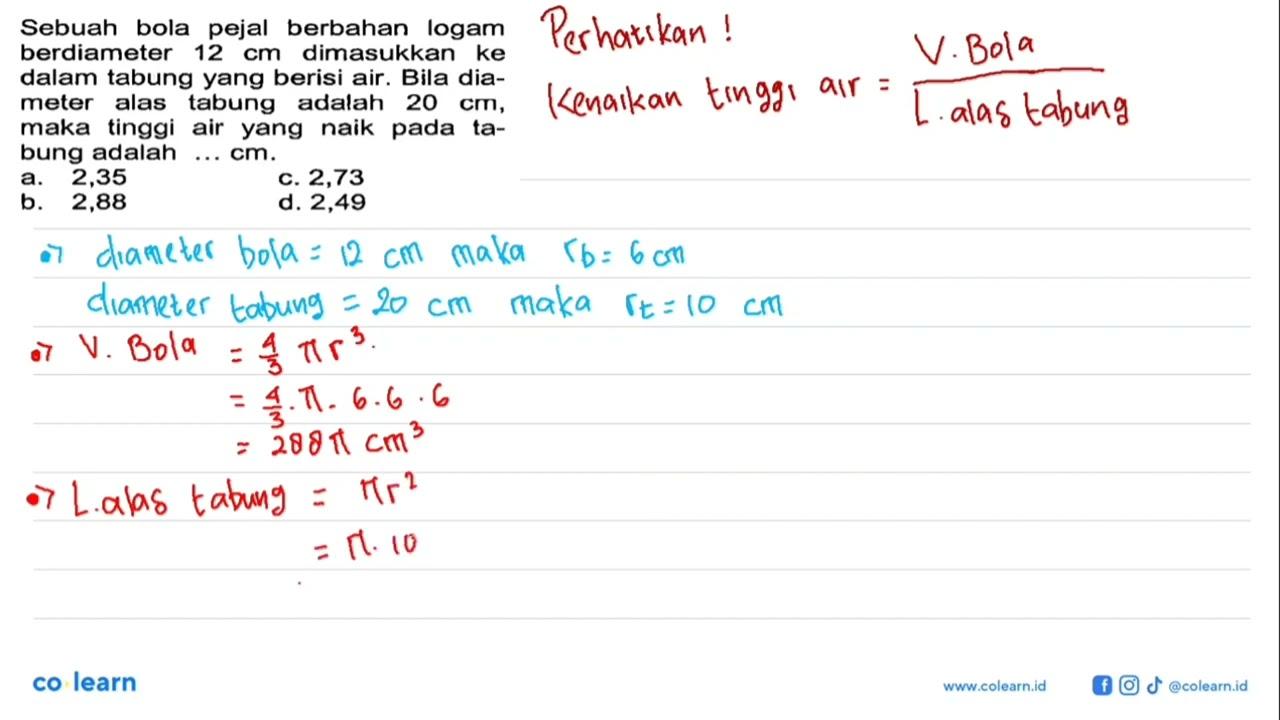 Sebuah bola pejal berbahan logam
berdiameter 12 cm dimasukkan ke
dalam tabung yang berisi air. Bila dia-
meter alas tabung adalah 20 cm,
maka tinggi air yang naik pada ta-
bung adalah ... cm.
a. 2,35 c. 2,73
b. 2,88 d. 2,49
Perhatikan !
Kenaikan tinggi air = V. Bola / L. alas tabung
•> diameter bola = 12 cm maka rb = 6 cm
diameter tabung = 20 cm maka rt = 10 cm
•> V. Bola = 4/3 πr³.
= 4/3 . π . 6 . 6 . 6
= 288π cm³
•> L. alas tabung = πr²
= π. 10
co learn
www.colearn.id @colearn.id